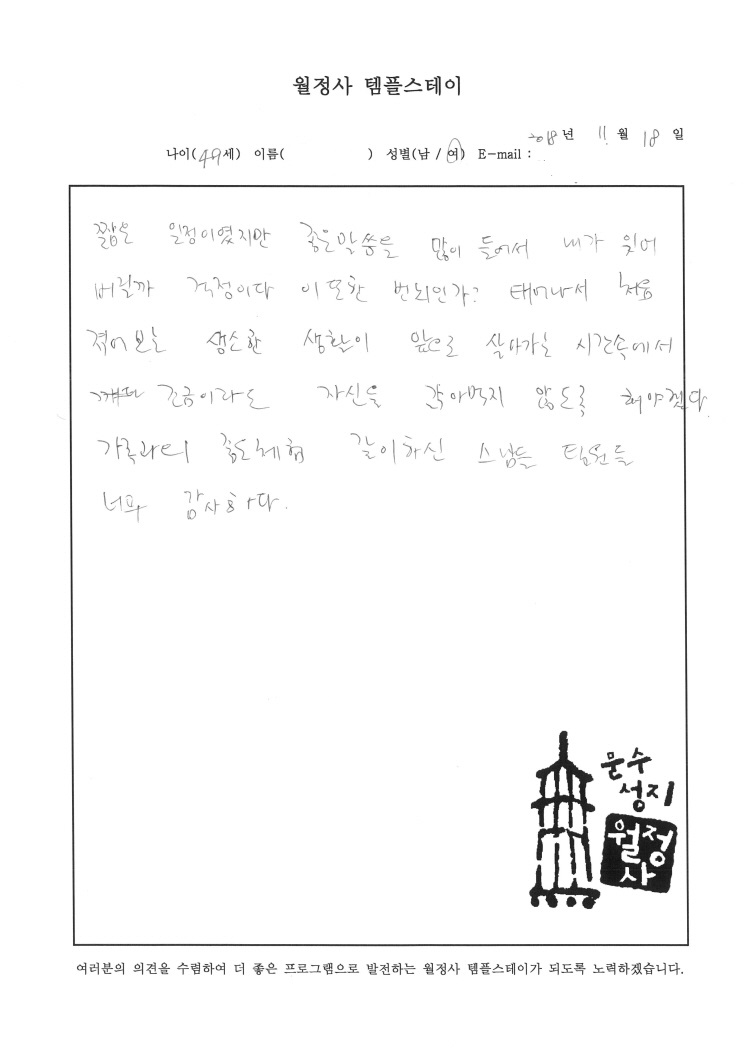 월정사 템플스테이
2018 년 11 월 18 일
나이(49세) 이름( ) 성별(남 / 여) E-mail :
짧은 일정이였지만 좋은말씀을 많이 들어서 내가 잊어
버릴까 걱정이다 이 또한 번뇌인가? 태어나서 처음
겪어보는 생소한 생활이 앞으로 살아가는 시간속에서
조금이라도 자신을 갉아먹지 않도록 해야겠다
가족과의 좋은체험 같이하신 스님들 팀원들
너무 감사하다.
문수
성지
월정
사
여러분의 의견을 수렴하여 더 좋은 프로그램으로 발전하는 월정사 템플스테이가 되도록 노력하겠습니다.